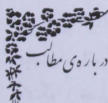 در باره‌ی مطالب